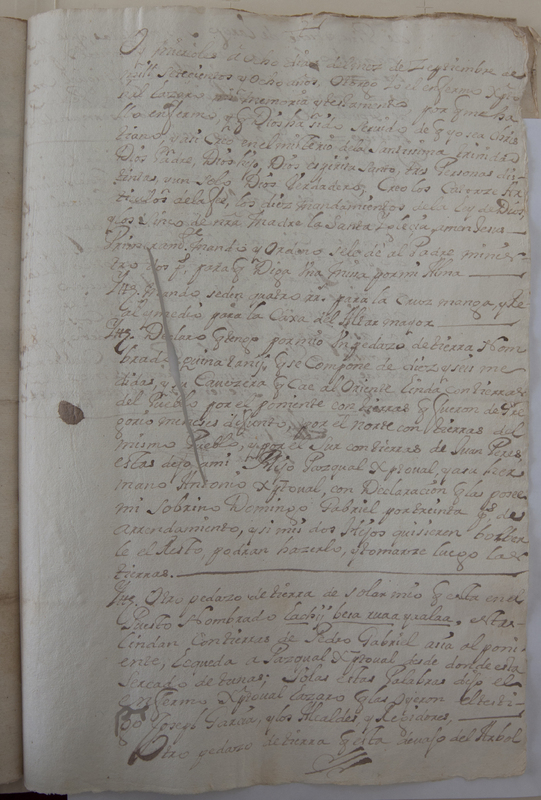 Oy miercoles a ocho dias del mes de Septiembre de
mill setecientos y ocho años. Otorgo yo el enfermo Xpto
bal Lazaro mi memoria y testamento por q me ha
llo enfermo y q Dios ha sido servido de q yo sea cris
tiano, y asi Creo en el misterio de la Santissima trinidad
Dios Padre, Dios hijo, Dios espiritu santo, tres Personas dis
tintas y un solo Dios Verdadero; Creo los Catorze Ar
ticulos de la fe, los diez mandamientos de la ley de Dios,
y los Cinco de nra madre la Santa Yglecia, amen Jesus
Primeramte mando y Ordeno se lo dé al Padre minis
tro un pº para q Diga Una missa por mi Alma
Yttt. Mando seden quatro rrs para la Cruz manga, y Re
al y medio para la Caxa del Altar mayor
Yttt. Declaro q tengo por mio Un pedazo de tierra Nom
brado Quinatanij q se Compone de diez y seis me
didas, y su Cavezera q Cae al Oriente linda con tierras
del Pueblo por el poniente con tierras q fueron de Gre
gorio meneses difunto, por el norte con tierras del
mismo Pueblo, y por el Sur con tierras de Juan Peres,
estas dejo a mi Hijo Pazqual Xptoual, y a su Her
mano Antonio Xptoual, con Declaracion q las posee
mi Sobrino Domingo Gabriel por treinta ps de
arrendamiento, y si mis dos Hijos quisieren bolber
le el Resto, podran hazerlo, y tomarse luego las
tierras.
Yttt. Otro pedazo de tierra de solar mio q esta en el
Puesto Nombrado Lachij bea ruaa yaalaa.
Lindan Con tierras de Pedro Gabriel asia al poni
ente, Le queda a Pazqual Xptoual desde donde esta
Sercado de tunas; Y las estas Palabras dejo el
enfermo Xptoual Lazaro q las oyeron el testi
go Joseph Garcia, y los Alcaldes, y Regidores,
Otro pedazo de tierra q esta Devajo del Arbol